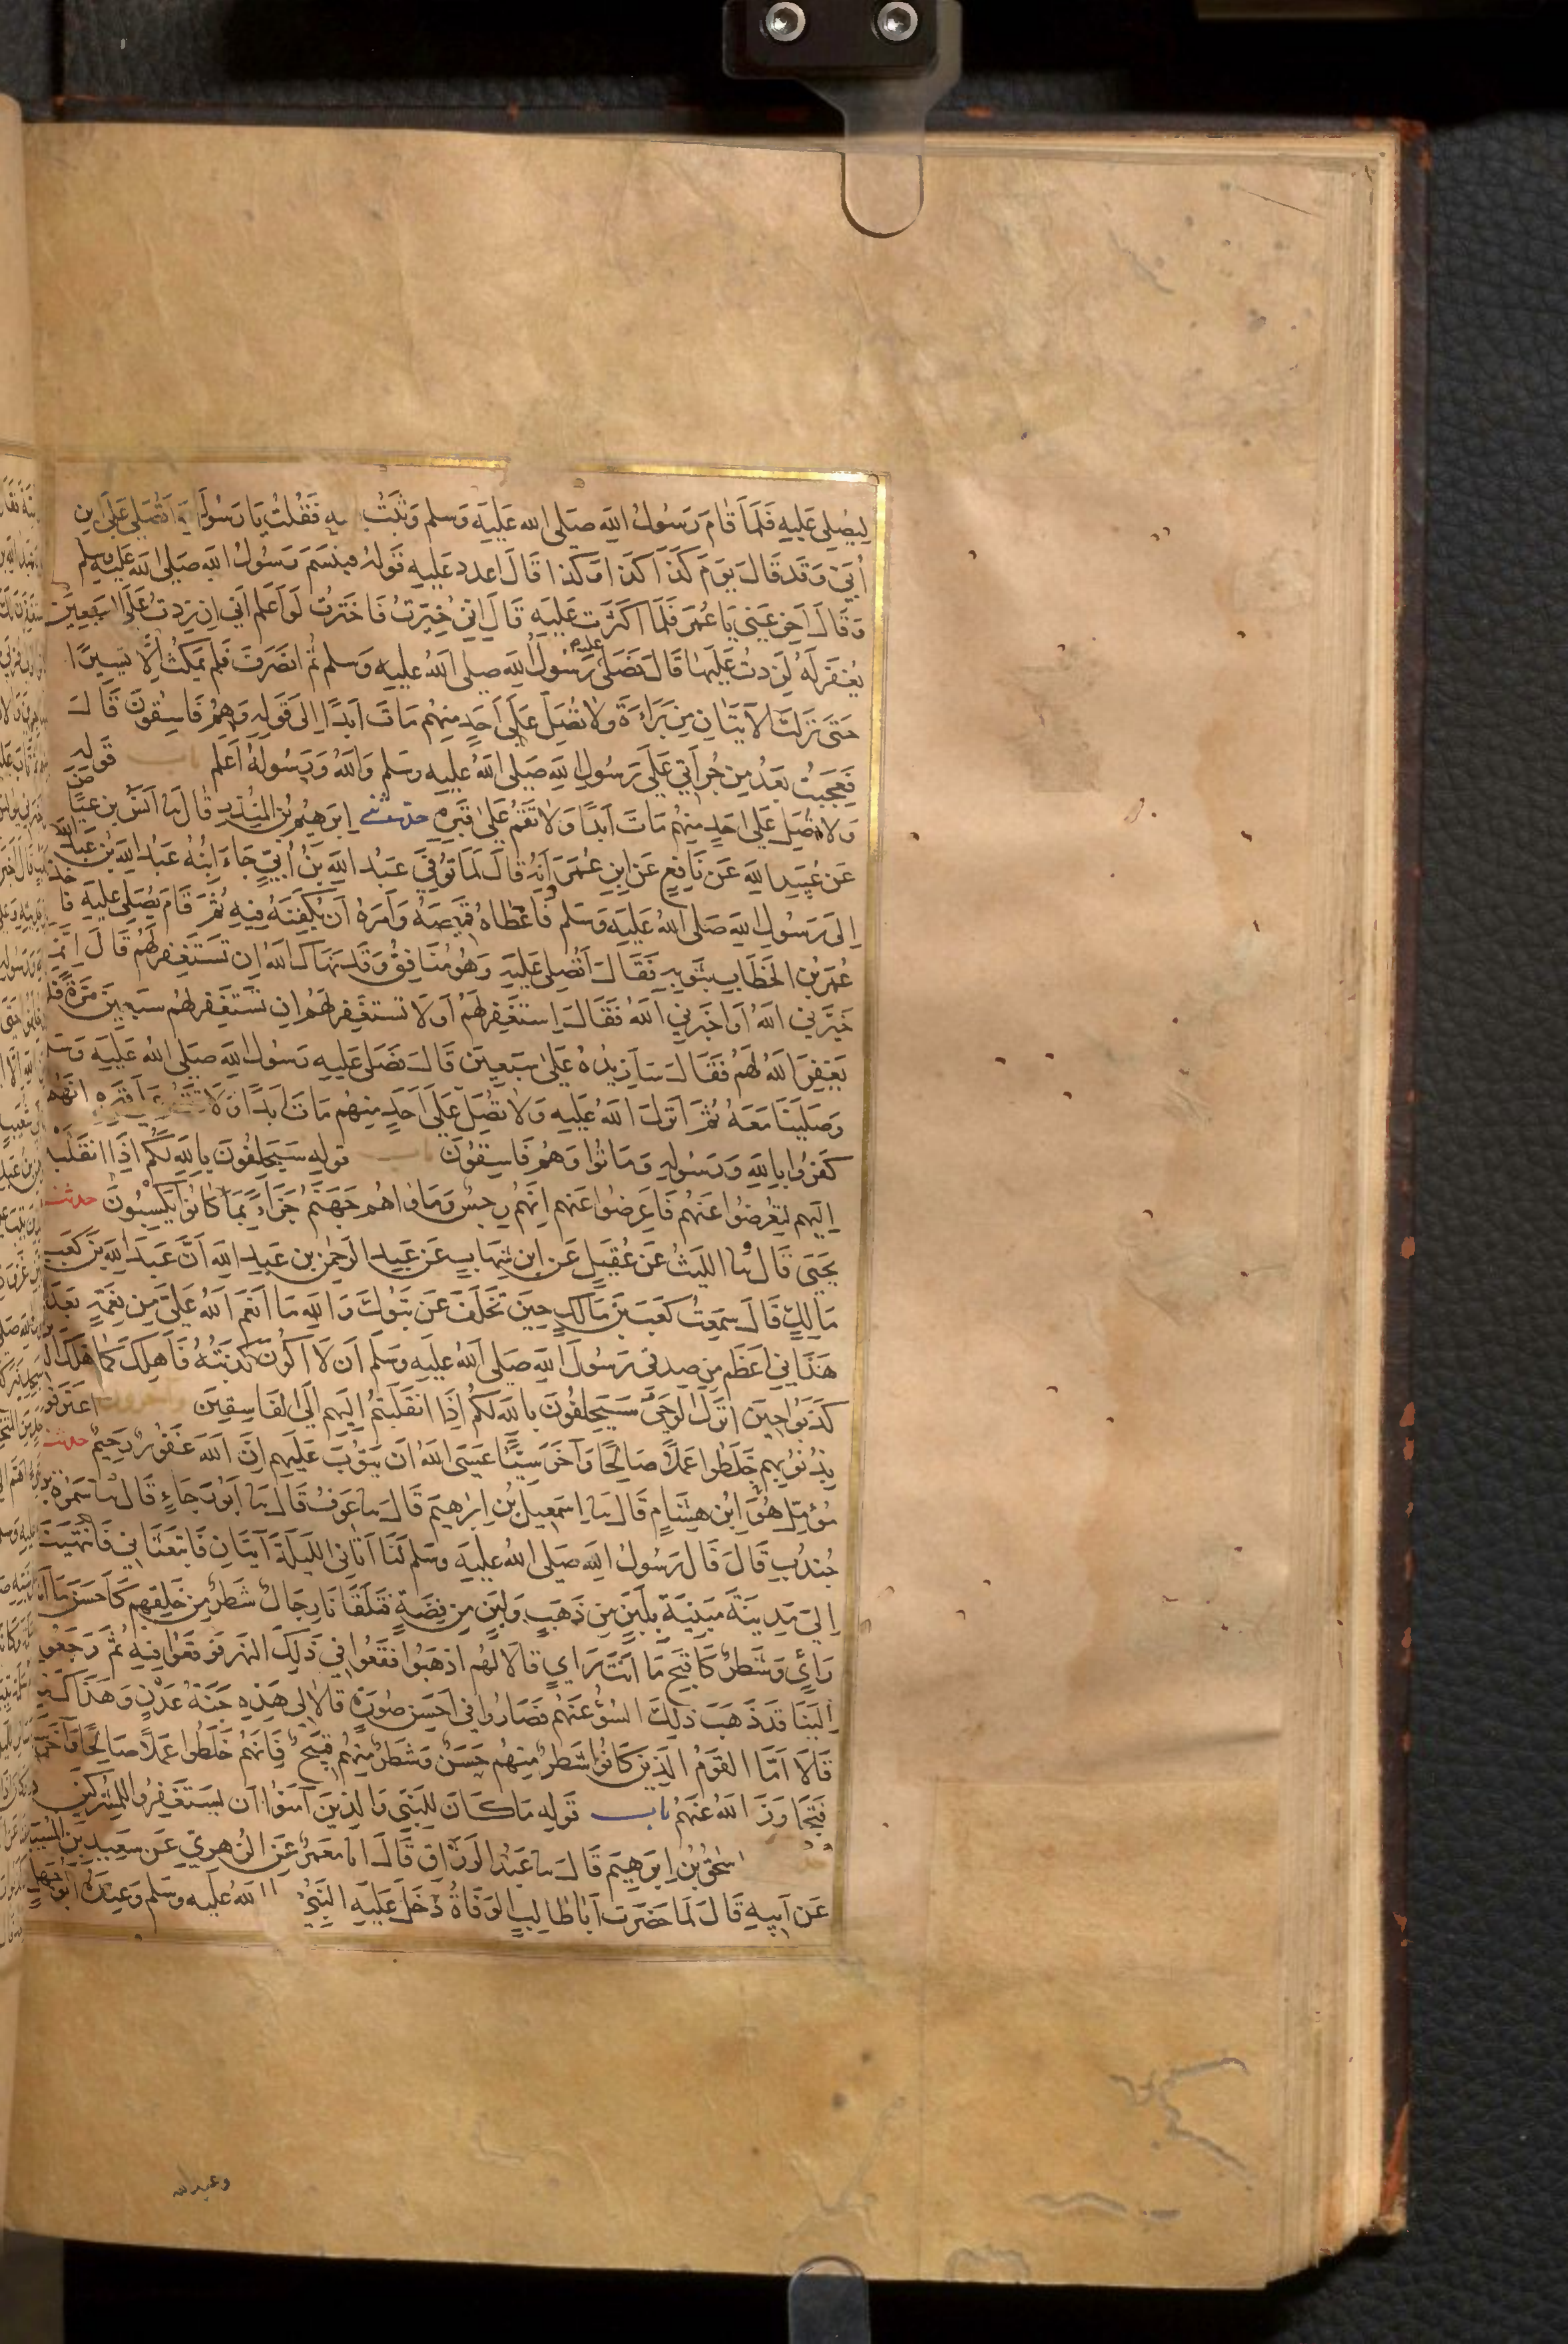 لِيُصَلِّيَ عَلَيْهِ فَلَمَّا قَامَ رَسُولُ اللَّهِ صَلَّى الله عَلَيْهِ وَسَلم وَثَبْتُ اليه فَقُلْتُ يَا رَسُولَ اتُصَلّي عَلَى ابن
أُبَيٍّ وَقَدْ قَالَ يَوْمَ كَذَا كَذَا وَكَذا قَالَ اعدد عَلَيْهِ قَوْلَهُ فتبَسَّمَ رَسُولُ اللَّهِ صَلَّى الله عَلَيْهِ وسلم
وَقَالَ أَخِّرْ عَنِّي يَا عُمَرُ فَلَمَّا أَكْثَرْتُ عَلَيْهِ قَالَ إِنِّي خُيِّرْتُ فَاخْتَرْتُ لَوْ أَعْلَمُ أَنِّي إِن زِدتُ عَلَى السَّبْعِينَ
يُغْفَرْ لَهُ لَزِدتُ عَلَيْهَا قَالَ فَصَلَّى عليه رَسُولُ اللَّهِ صلى اللهُ عليهِ وَسلم ثُمَّ انصَرَفَ فَلَمْ يَمْكُثْ إِلَّا يَسِيرًا
حَتَّى نَزَلَتْ الآيَتَانِ مِن بَرَاءَةَ وَلا تُصَلِّ عَلَى أَحَدٍ مِنْهُم مَاتَ أَبَدًا إِلَى قَوْلِهِ وَهُمْ فَاسِقُونَ قَالَ
فَعَجِبْتُ بَعْدُ مِن جُرْأَتِي عَلَى رَسُولِ اللَّهِ صَلى اللهُ عليهِ وسلم وَاللَّهُ وَرَسُولُهُ أَعْلم باب قَوْلِهِ
وَلا تُصَلِّ عَلَى أَحَدٍ مِنْهُم مَاتَ أَبَدًا وَلَا تَقُمْ عَلَى قَبْرِهِ حدثني إِبْرَهِيمُ بْنُ المُنْذِرِ قال نا أَنَسُ بن عِيَاض
عَن عُبَيْدِ اللَّهِ عَن نَافِعٍ عَن ابنِ عُمَرَ أَنَّهُ قَالَ لَمَّا تُوُفِّيَ عَبْدُ اللَّهِ بْنُ أُبَيٍّ جَاءَ ابْنُهُ عَبْدُ اللَّهِ بن عَبدِ الله
إِلَى رَسُولِ اللَّهِ صَلى اللهُ عَلَيْهِ وَسَلم فَأَعْطَاهُ قَمِيصَهُ وَأَمَرَهُ أَنْ يُكَفِّنَهُ فِيهِ ثُمَّ قَامَ يُصَلّي عَلَيْهِ فاخذ
عُمَرُ بْن الخَطَّابِ بِثَوْبِهِ فَقَالَ أَتُصَلِّي عَلَيْهِ وَهُوَ مُنَافِقٌ وَقَدْ نَهَاكَ اللَّهُ ان تَسْتَغْفِرَ لَهُمْ قَالَ إِنَّمَا
خَيَّرَنِي اللَّهُ أَوْ أَخْبَرَنِي اللَّهُ فَقَالَ اسْتَغْفِرْ لَهُمْ أَوْ لَا تَسْتَغْفِرْ لَهُمْ ان تَسْتَغْفِرْ لَهُمْ سَبْعِينَ مَرَّةً فلن
يَغْفِرَ اللَّهُ لَهُمْ فَقَالَ سَأَزِيدُهُ عَلَى سَبْعِينَ قَالَ فَصَلَّى عَلَيْهِ رَسُولُ اللَّهِ صلى اللهُ عَلَيْهِ وَسَلم
وَصَلَّيْنَا مَعَهُ ثُمَّ أَنْزَلَ اللَّهُ عَلَيْهِ وَلا تُصَلِّ عَلَى أَحَدٍ مِنْهُم مَاتَ أَبَدًا وَلَا تَقُمْ عَلَى قَبْرِهِ إِنَّهُمْ
كَفَرُوا بِاللَّهِ وَرَسُولِهِ وَمَاتُوا وَهُمْ فَاسِقُونَ باب قوله سَيَحْلِفُونَ بِاللَّهِ لَكُمْ إِذَا انْقَلَبْتُم
إِلَيْهِم لِتُعْرِضُوا عَنْهُمْ فَأَعْرِضُوا عَنهم إِنَّهُمْ رِجْسٌ وَمَأواهُم جَهَنَّمُ جَزَاءً بِمَا كَانُوا يَكْسِبُونَ حدثنا
يَحْيَى قَالَ نا اللَّيْثُ عَنْ عُقَيْلٍ عَن ابنِ شِهَابٍ عَن عَبدِ الرَحْمٰنِ بن عَبدِ اللَّهِ أَنَّ عَبْدَ اللَّهِ بْنَ كَعْبِ بن
مَالِكٍ قَالَ سَمِعْتُ كَعْبَ بْنَ مَالكٍ حِينَ تَخَلَّفَ عَنْ تَبُوكَ وَاللَّهِ مَا أَنْعَمَ اللَّهُ عَلَيَّ مِن نِعْمَةٍ بَعْدَ
هَدَانِي أَعْظَم مِن صدقي رَسُولَ اللَّهِ صَلَى اللهُ عَلَيْهِ وَسَلَّم أَن لَا أَكُونَ كَذَبْتُهُ فَأَهْلِكَ كَمَا هَلَكَ الَّذين
كَذَبُوا حِينَ أُنْزِلَ الْوَحْيُ سَيَحْلِفُونَ بِاللَّهِ لَكُمْ إِذَا انْقَلَبْتُمْ إِلَيْهِم إِلَى الْفَاسِقِينَ وآخرون اعْتَرَفُوا
بِذُنُوبِهِم خَلَطُوا عَمَلًا صَالِحًا وَآخَرَ سَيِّئًا عَسَى اللَّهُ أَن يَتُوبَ عَلَيْهِم إِنَّ اللَّهَ غَفُورٌ رَحِيمٌ حدثنا
مُؤَمَّلٌ هُوَ ابْنُ هِشَامٍ قَالَ نا إِسْمَعِيلُ بْنُ إِبْرَهِيمَ قَالَ نا عَوْفٌ قَالَ نا أَبُو رَجَاءٍ قَالَ نا سَمُرَةُ بن
جُنْدُبٍ قَالَ قَالَ رَسُولُ اللَّهِ صَلى اللهُ عليهِ وسَلم لَنَا أَتَانِي اللَّيْلَةَ آتِيَانِ فَابْتَعَثَانِي فَانْتَهَيْنَا
إِلَى مَدِينَةٍ مَبْنِيَّةٍ بِلَبِنٍ مِن ذَهَبٍ وَلَبِنٍ مِن فِضَّةٍ فَتَلَقَّانَا رِجَالٌ شَطْرٌ مِن خَلْقِهِم كَأَحْسَنِ مَا أنت
رَاءٍ وَشَطْرٌ كَأَقْبَحِ مَا أَنْتَ رَاءٍ قَالَا لَهُم اذْهَبُوا فَقَعُوا فِي ذَلِكَ النَّهْرِ فَوَقَعُوا فِيهِ ثُمَّ رَجَعُوا
إِلَيْنَا قَدْ ذَهَبَ ذَلِكَ السُّوءُ عَنْهُمْ فَصَارُوا فِي أَحْسَنِ صُورَةٍ قَالَا لِي هَذِهِ جَنَّةُ عَدْنٍ وَهَذَاكَ
قَالَا أَمَّا القَوْمُ الَّذِينَ كَانُوا شَطْرٌ مِنْهُم حَسَنٌ وَشَطْرٌ مِنْهُمْ قَبِيحٌ فَإِنَّهُمْ خَلَطُوا عَمَلًا صَالِحًا وَآخَرَ
فَتَجَاوَزَ اللَّهُ عَنْهُمْ باب قَوْلِهِ مَا كَانَ لِلنَّبِيِّ وَالذِينَ آمَنُوا أَن يَسْتَغْفِرُوا لِلْمُشْرِكِينَ
إسْحقُ بْنُ إِبرَهِيمَ قَالَ نا عَبْدُ الرَّزَّاقِ قَالَ أنا مَعْمَرٌ عَن الزُّهْرِيِّ عَن سَعِيدِ بنِ المُسَيَّبِ
عَن أَبِيهِ قَالَ لَمَّا حَضَرَت أَبَا طَالِبٍ الوَفَاةُ دَخَلَ عَلَيْهِ النَّبِيُّ اللهُ عَلَيهِ وسَلم وَعِنْدَهُ أَبُو جَهْلٍ
وعبدالله